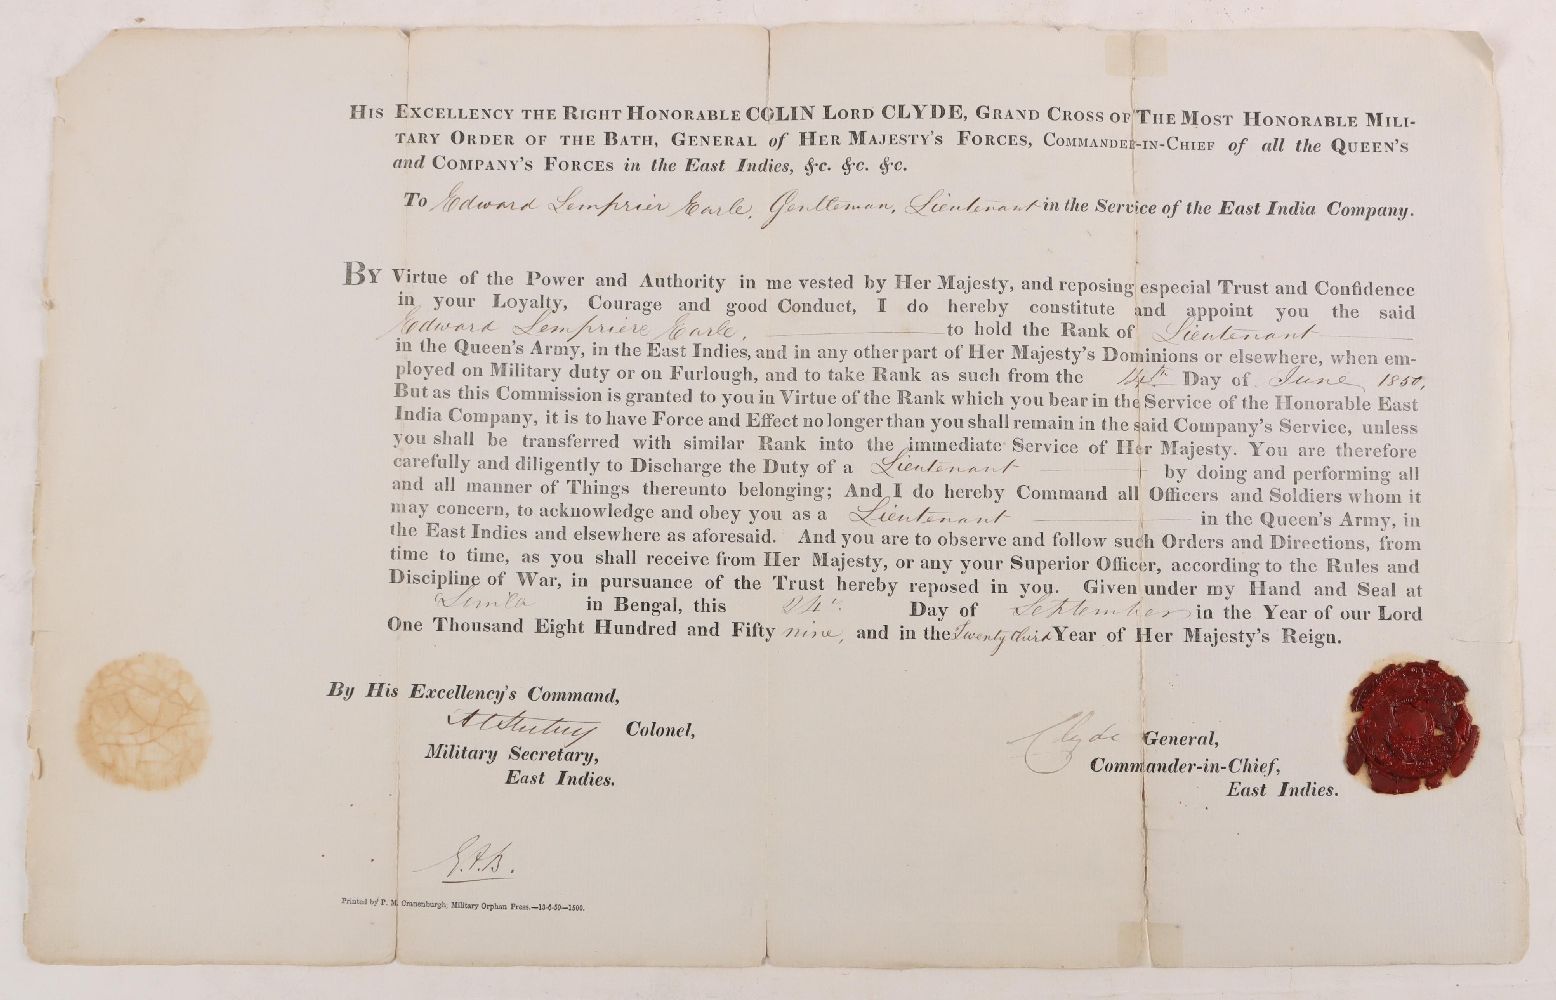 HIS EXCELLENCY THE RIGHT HONORABLE COLIN LORD CLYDE, GRAND CROSS OF THE MOST HONORABLE MILI-
TARY ORDER OF THE BATH, GENERAL of HER MAJESTY'S FORCES, COMMANDER-IN-CHIEF of all the QUEEN'S
and COMPANY'S FORCES in the East Indies, &c. &c. &c.
To Edward Lemprier Earle, Gentleman, Lieutenant in the Service of the East India Company.
BY Virtue of the Power and Authority in me vested by Her Majesty, and reposing especial Trust and Confidence
in your Loyalty, Courage and good Conduct, I do hereby constitute and appoint you the said
Edward Lempriere Earle, to hold the Rank of Lieutenant
in the Queen's Army, in the East Indies, and in any other part of Her Majesty's Dominions or elsewhere, when em-
ployed on Military duty or on Furlough, and to take Rank as such from the 14th Day of June 1850,
But as this Commission is granted to you in Virtue of the Rank which you bear in the Service of the Honorable East
India Company, it is to have Force and Effect no longer than you shall remain in the said Company's Service, unless
you shall be transferred with similar Rank into the immediate Service of Her Majesty. You are therefore
carefully and diligently to Discharge the Duty of a Lieutenant by doing and performing all
and all manner of Things thereunto belonging; And I do hereby Command all Officers and Soldiers whom it
may concern, to acknowledge and obey you as a Lieutenant in the Queen's Army, in
the East Indies and elsewhere as aforesaid. And you are to observe and follow such Orders and Directions, from
time to time, as you shall receive from Her Majesty, or any your Superior Officer, according to the Rules and
Discipline of War, in pursuance of the Trust hereby reposed in you. Given under my Hand and Seal at
Simla in Bengal, this 24th Day of September in the Year of our Lord
One Thousand Eight Hundred and Fifty nine, and in the Twenty third Year of Her Majesty's Reign.
By His Excellency's Command,
Colonel,
Military Secretary,
East Indies.
Clyde General,
Commander-in-Chief,
East Indies.
E.A.B.
Printed by P. M. Cranenburgh, Military Orphan Press.—13-6-59—1500.